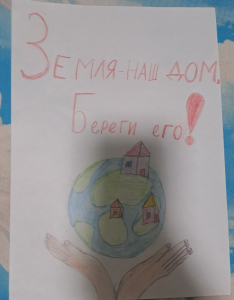 Земля-наш дом.
Береги его!